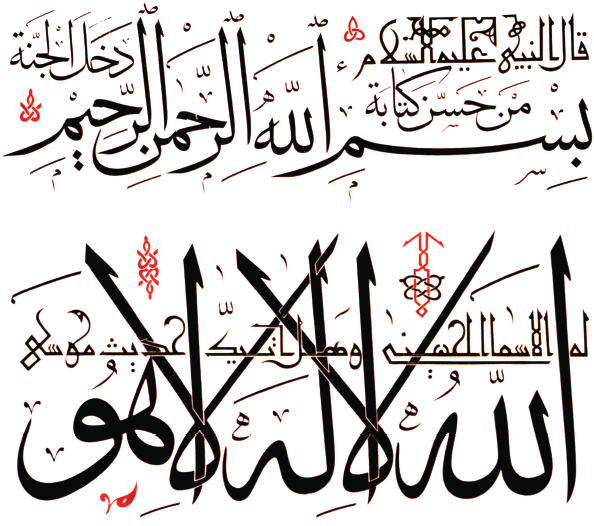 قال النبي عليه السلام
من حسن كتابة
بسم الله الرحمن الرحيم
دخل الجنة
الله لا إله إلا هو
له الاسماء الحسنى وهل اتيك حديث موسى